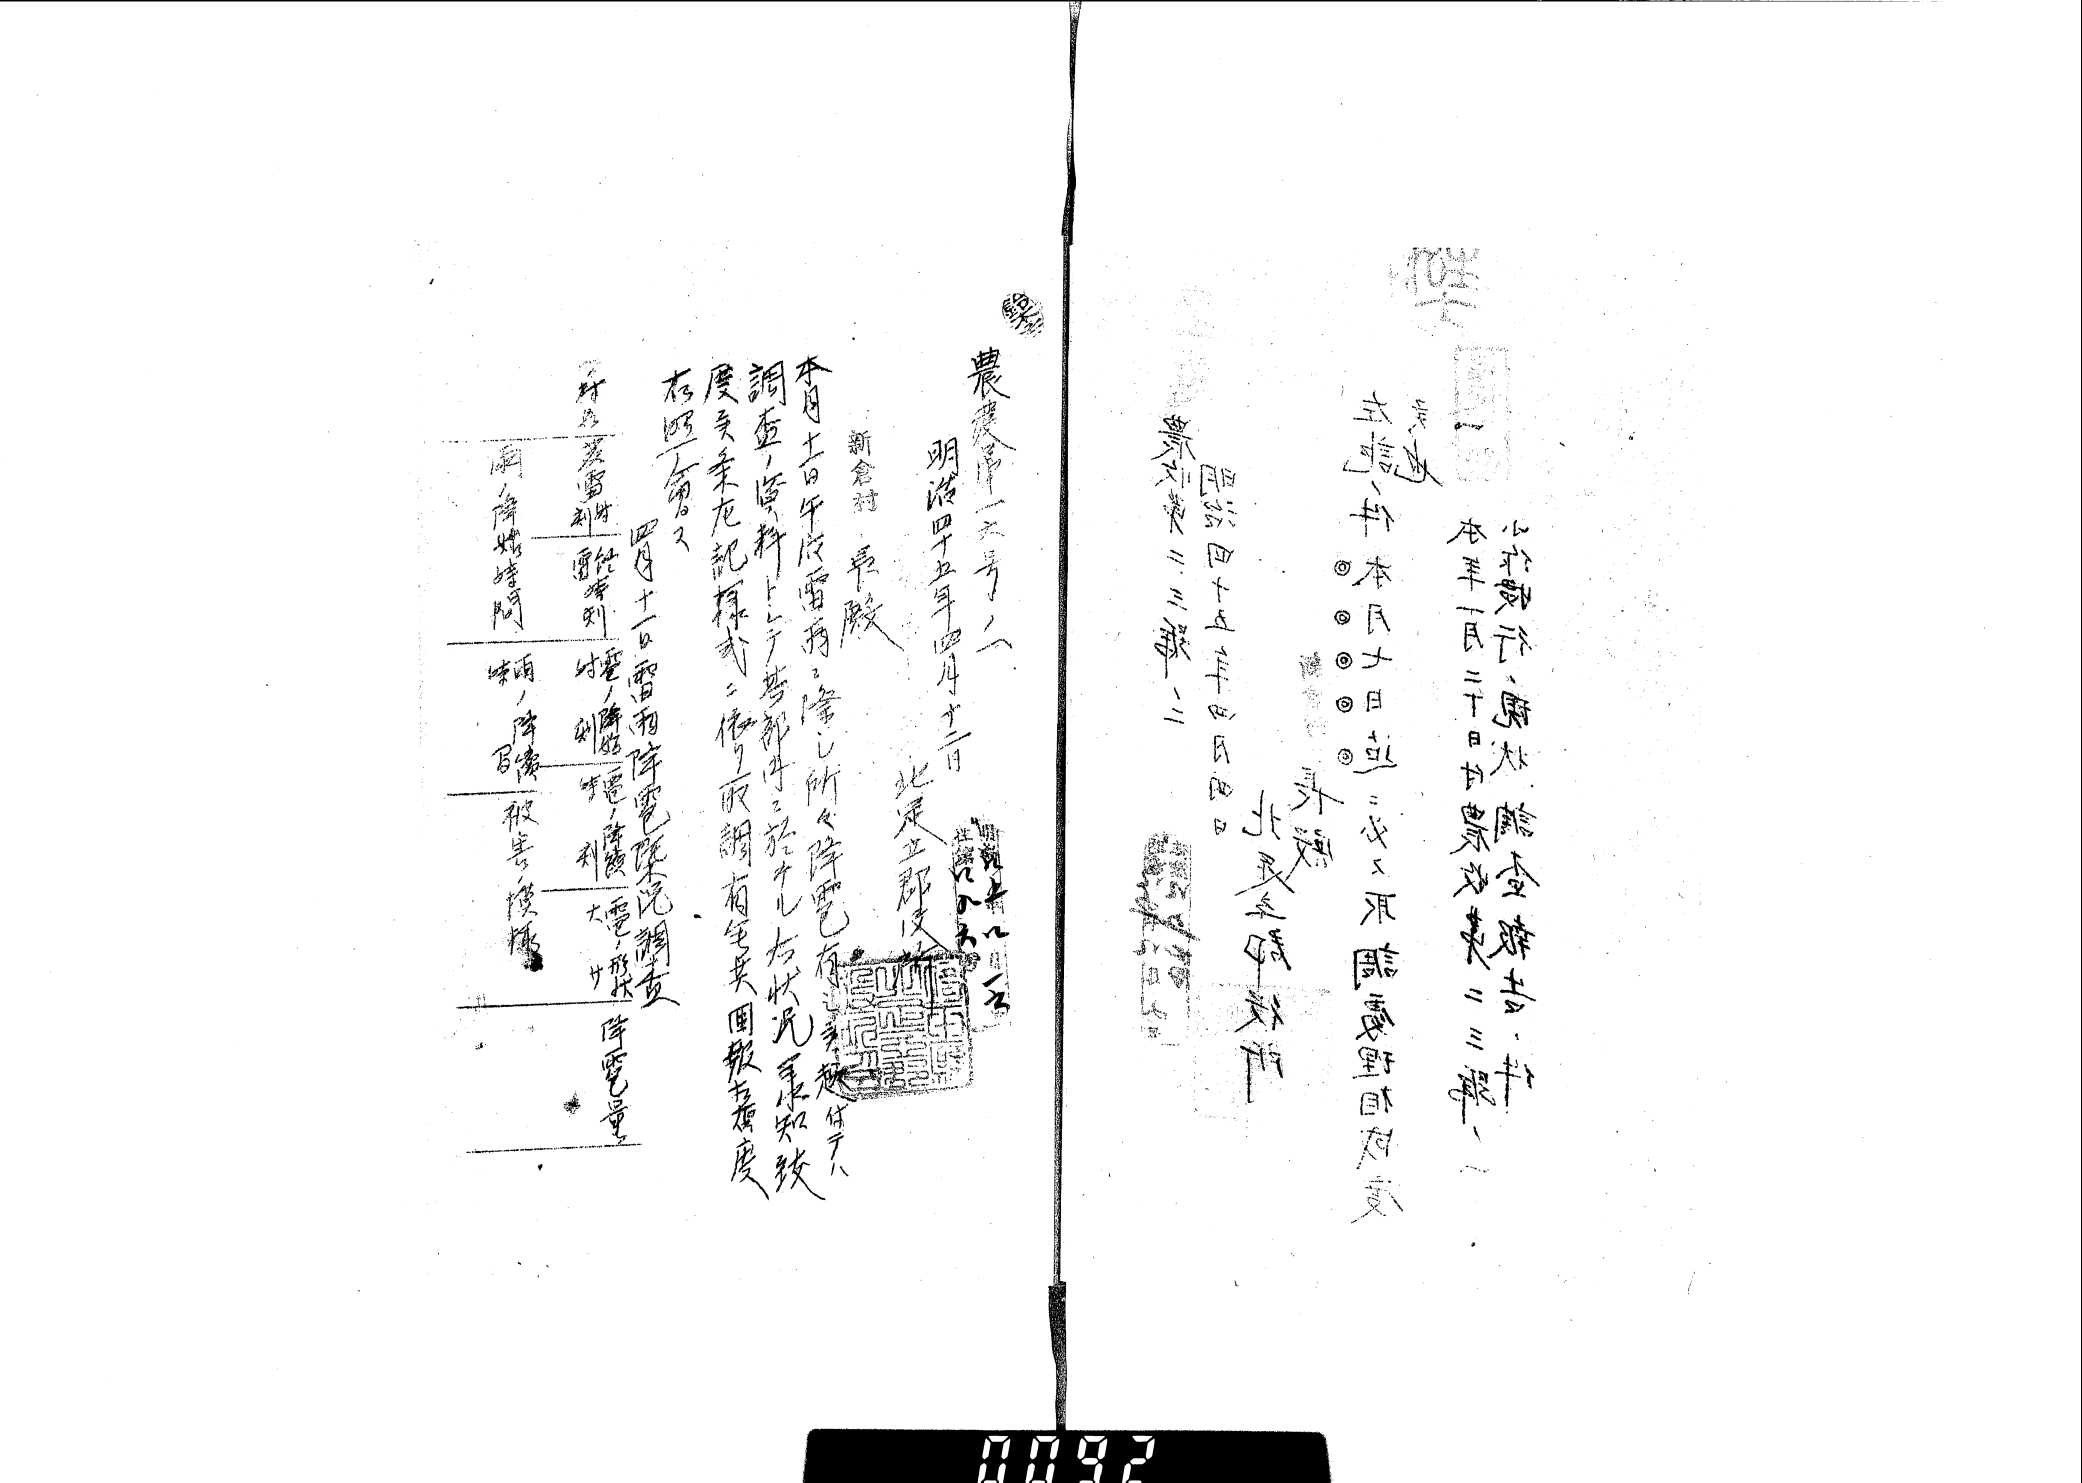 農発第一六号ノ一
明治四十五年四月十二日
北足立郡役所
新倉村長殿
本月十一日午后雷雨ニ際シ所々降雹有之候趣付テハ
調査ノ資料トシテ貴部内ニ於ケル右状況承知致
度候条左記様式ニ依リ取調有無共回報相煩度
右照会ス
四月十一日雷雨降雹概況調査
村名
発雷時刻
終雷時刻
雹ノ降始時刻
雹ノ降続時刻
雹ノ形状大サ
降雹量
雨ノ降始時間
雨ノ降続時間
被害ノ模様
農收第二三號ノ二
明治四十五年四月四日
北足立郡役所
長殿
左記ノ件本月七日迄ニ必ス取調處理相成度
◎◎◎◎◎
本年一月二十日付農收第二三號ノ一
小作發行ノ現状調査報告ノ件
0092